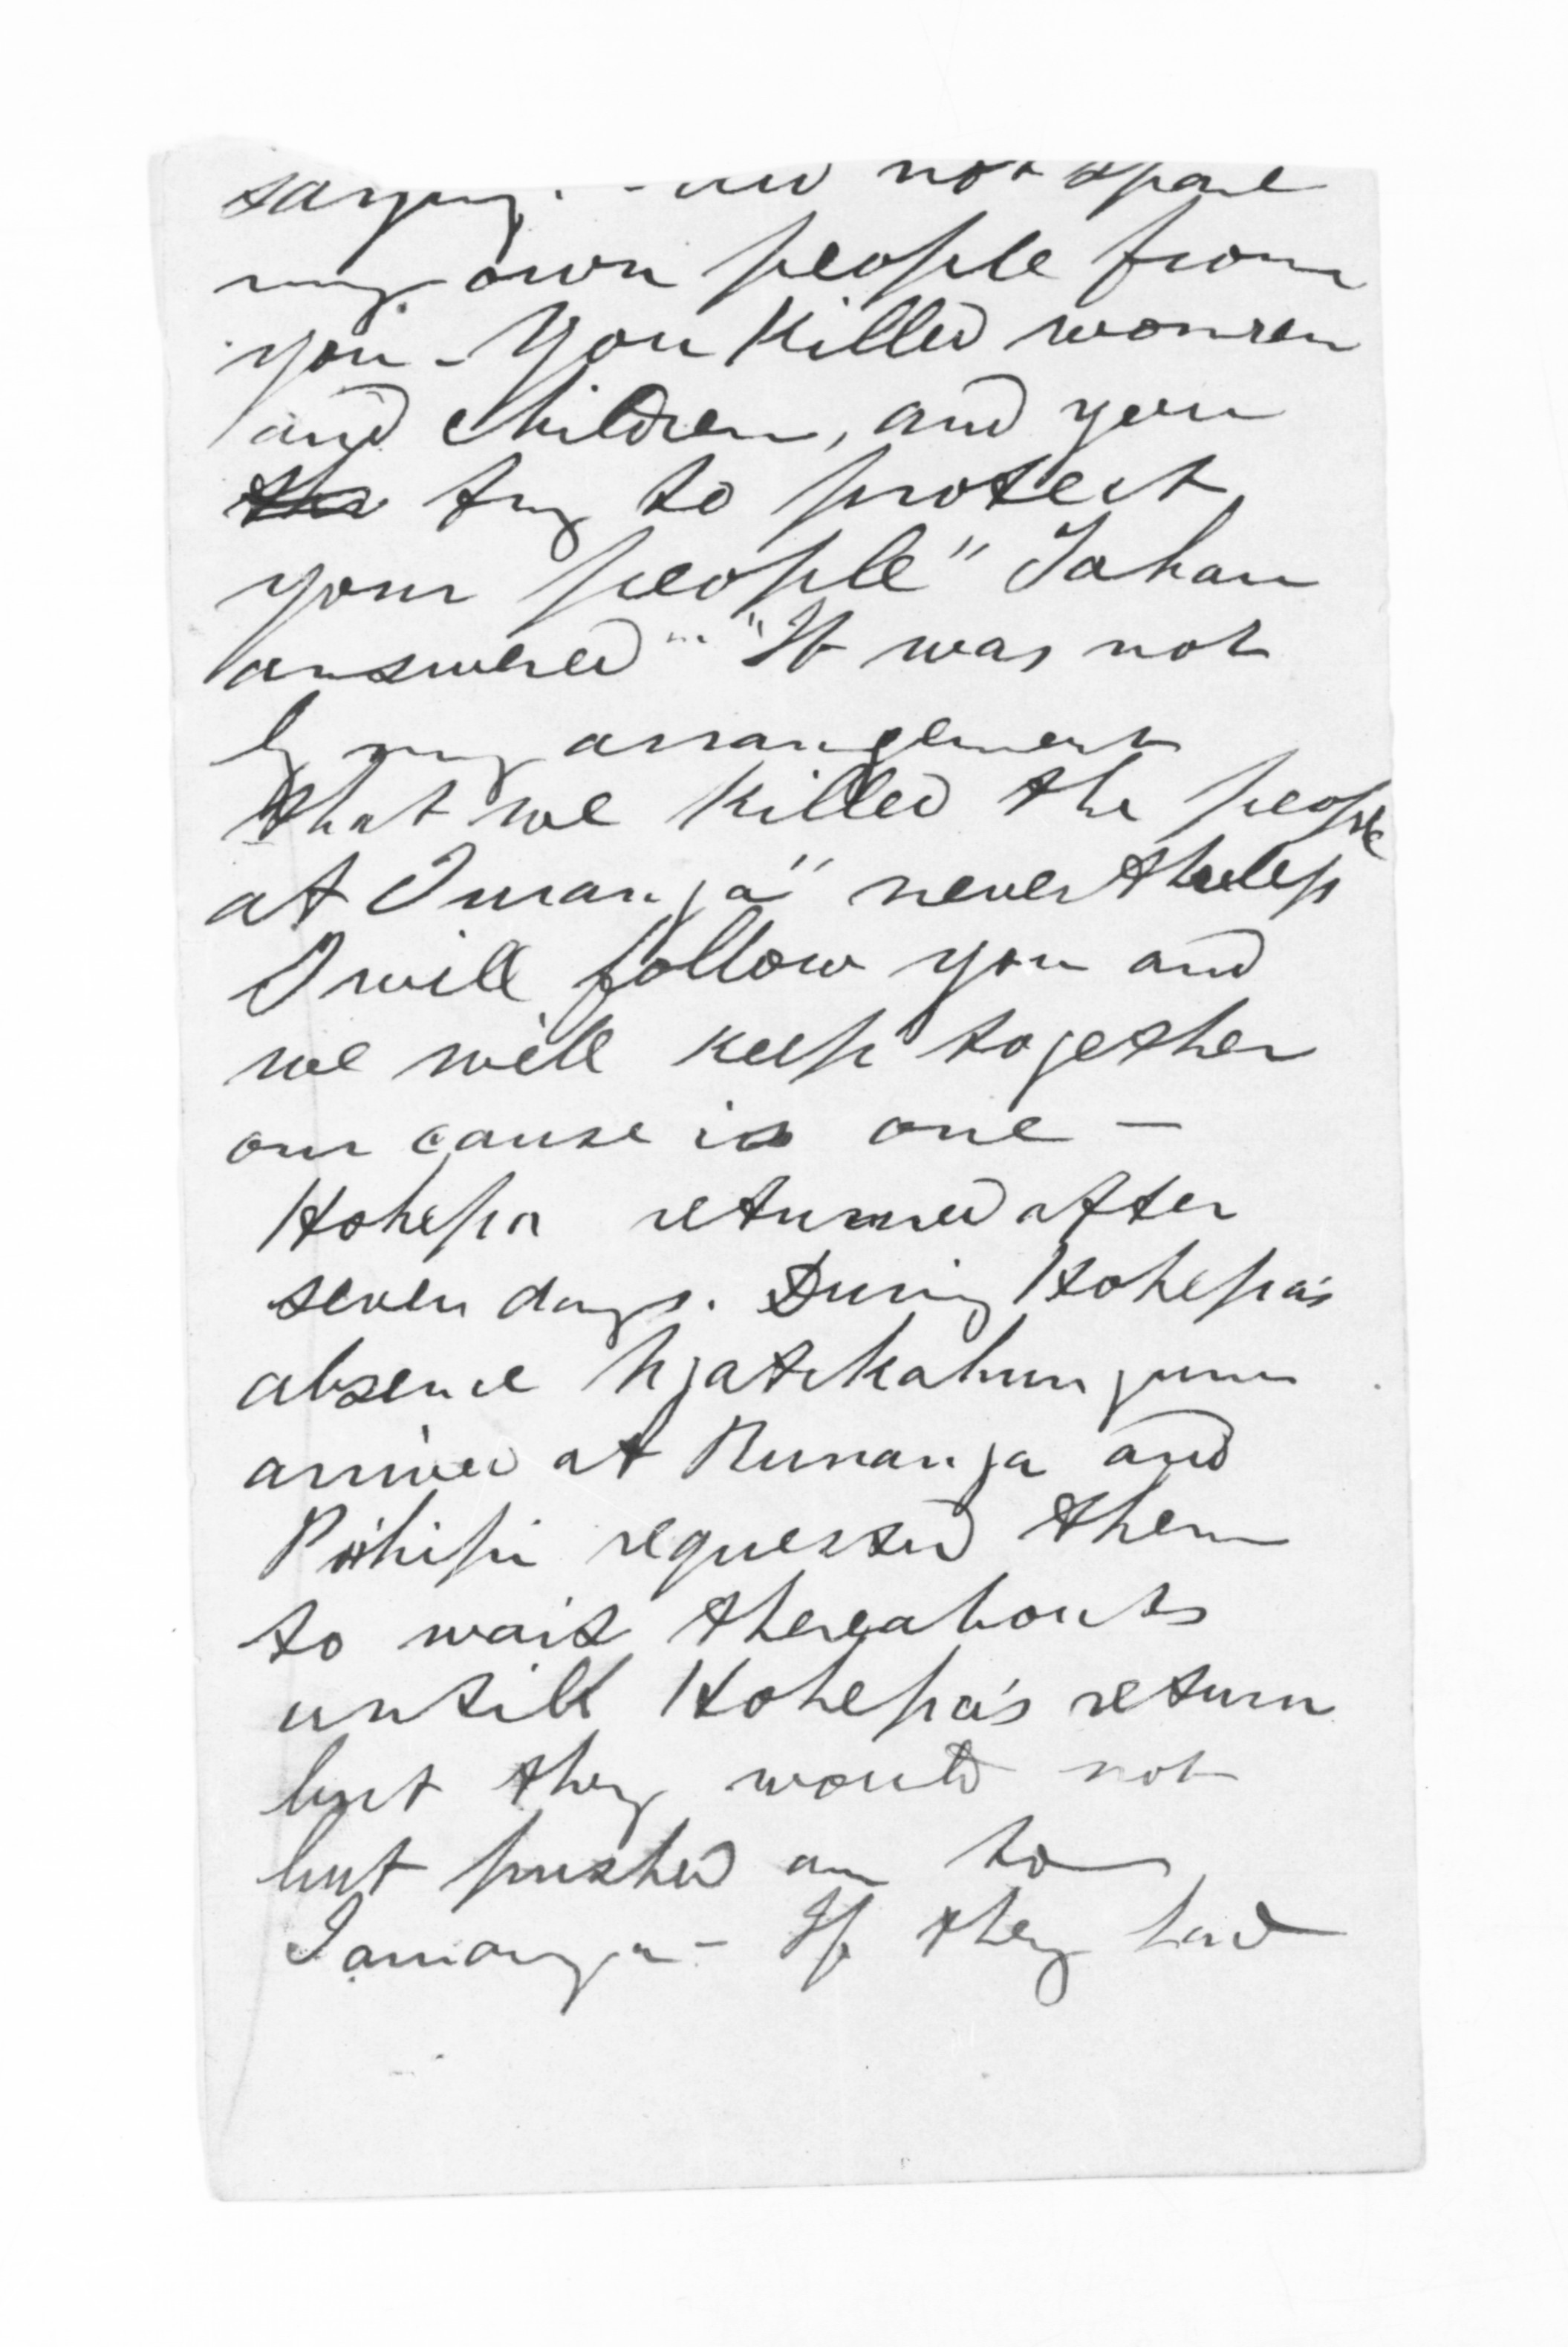 saying. not spare
my own people from
you - You Killed women
and children, and you
try to protect
your people" Tahau
answered "It was not
by my arrangement
that we killed the people
at Omaranga" nevertheless
I will follow you and
we will keep together
our cause is one -
Hohepa returned after
seven days. During Hohepa's
absence Ngatikahungunu
arrived at Runanga and
Poihipi requested them
to wait thereabouts
untill Hohepa's return
but they would not
but pushed on to
If they had